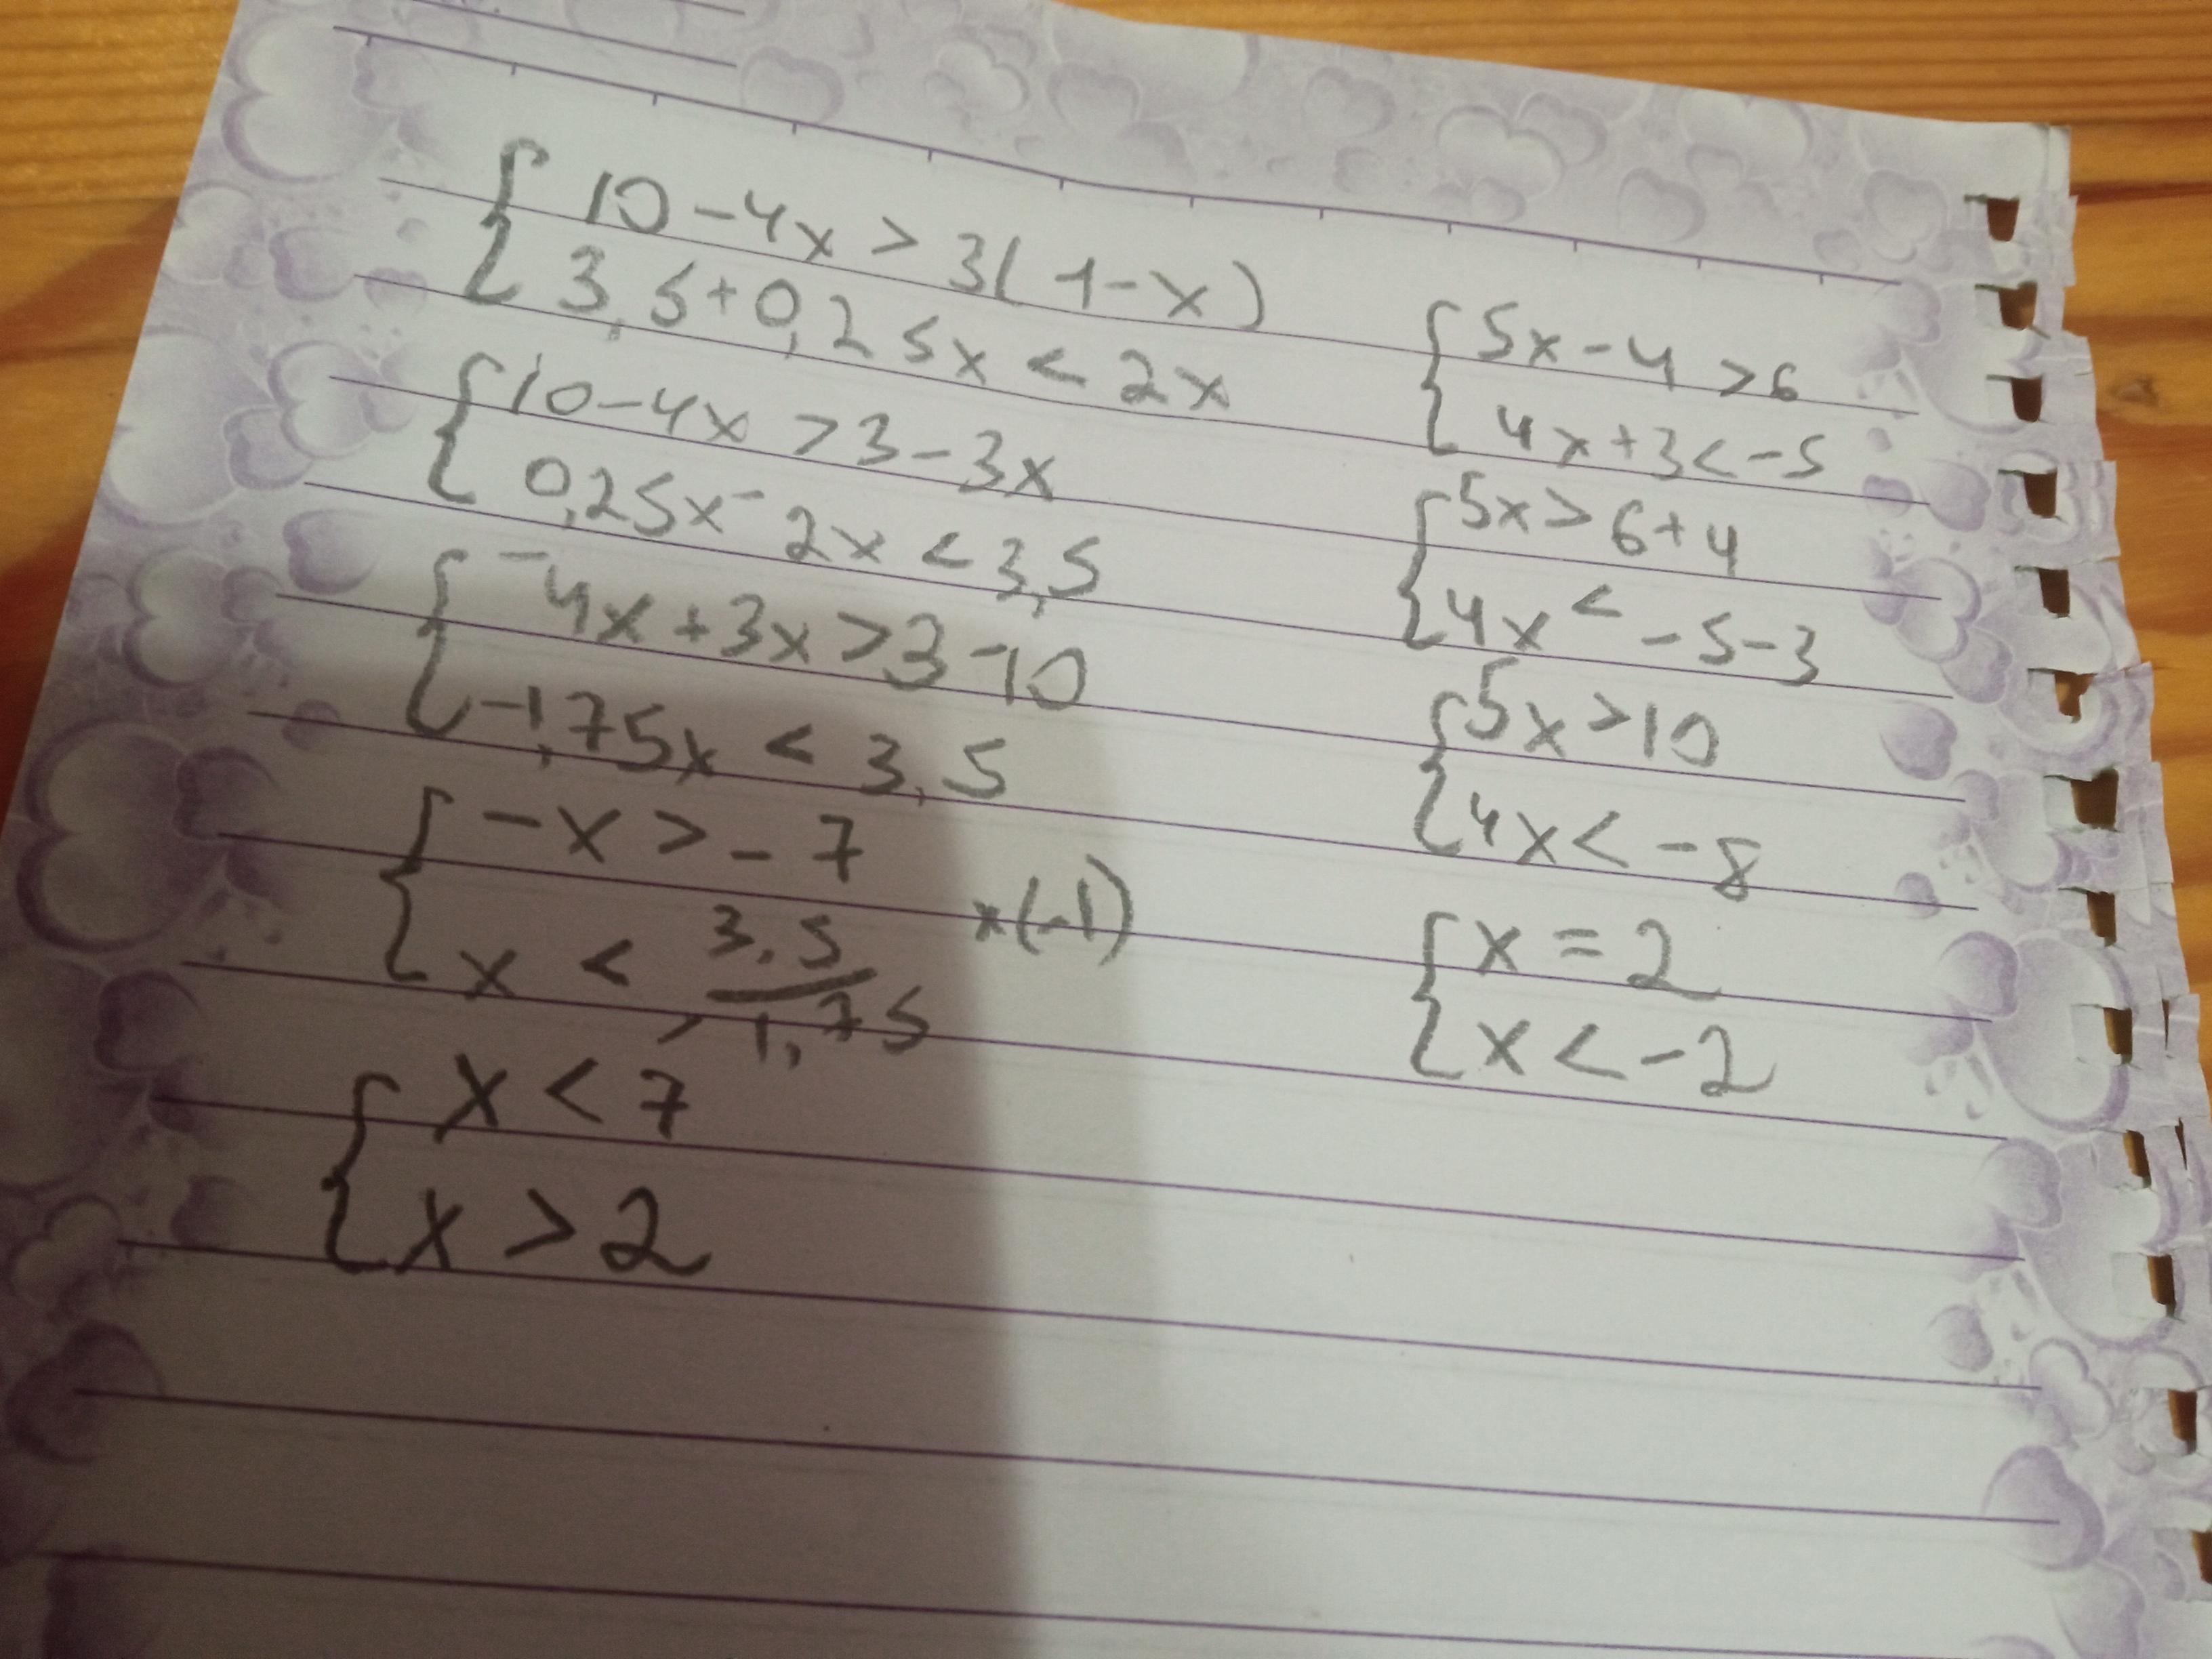 10 - 4x > 3(1 - x)
3,5 + 0,25x < 2x
10 - 4x > 3 - 3x
0,25x - 2x < 3,5
-4x + 3x > 3 - 10
-1,75x < 3,5
-x > - 7
x < 3,5 / > 1,75 x(-1)
x < 7
x > 2
5x - 4 > 6
4x + 3 < - 5
5x > 6 + 4
4x < - 5 - 3
5x > 10
4x < - 8
x = 2
x < - 2